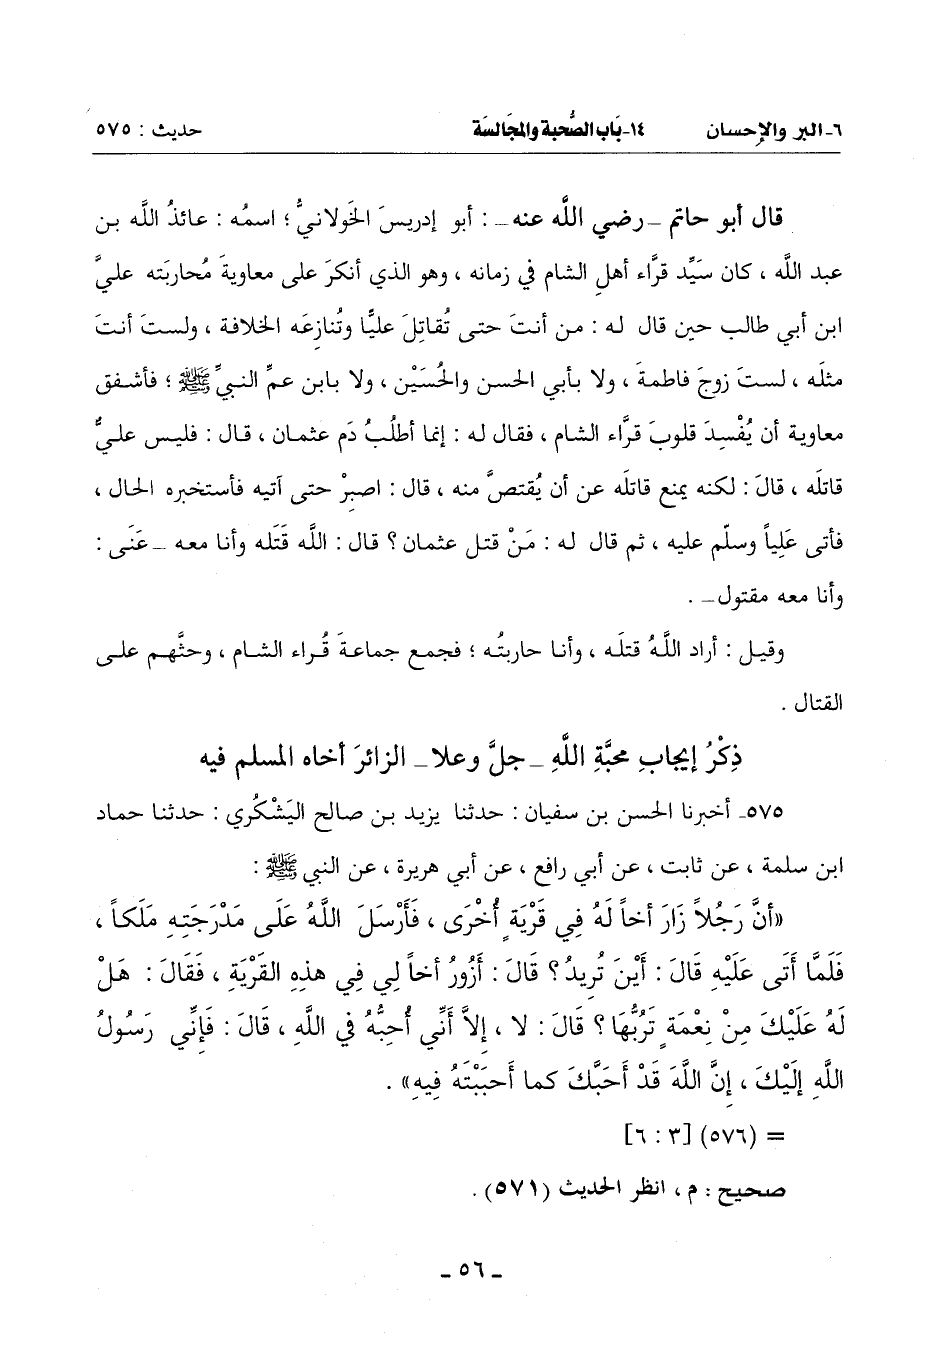 ٦- البر والإحسان ١٤- بَاب الصُّحبة والمجَالسَة حديث : ٥٧٥
قال أبو حاتم ـ رضي اللَّه عنه ـ : أبو إدريسَ الخَولانيُّ ؛ اسمُه : عائذُ اللَّه بن
عبد اللَّه ، كان سَيِّد قرَّاء أهلِ الشام في زمانه ، وهو الذي أنكرَ على معاويةَ مُحاربَته عليَّ
ابن أبي طالب حين قال له : من أنتَ حتى تُقاتِلَ عليًّا وتُنازِعَه الخلافة ، ولستَ أنتَ
مثلَه ، لستَ زوجَ فاطمةَ ، ولا بأبي الحسن والحُسَيْن ، ولا بابن عمِّ النبيِّ ﷺ ؛ فأشفق
معاوية أن يُفْسِدَ قلوبَ قرَّاء الشام ، فقال له : إنما أطلُبُ دَم عثمان ، قال : فليس عليٌّ
قاتلَه ، قالَ : لكنه يمنع قاتلَه عن أن يُقتصَّ منه ، قال : اصبِرْ حتى آتيه فأستخبره الحال ،
فأتى عَلياً وسلّم عليه ، ثم قال له : مَنْ قتل عثمان ؟ قال : اللَّه قَتَله وأنا معه ـ عَنَى :
وأنا معه مقتول ـ .
وقيل : أراد اللَّهُ قتلَه ، وأنا حاربتُه ؛ فجمع جماعةَ قُراء الشام ، وحثَّهم على
القتال .
ذِكْرُ إيجابِ محبَّةِ اللَّهِ ـ جلَّ وعلا ـ الزائرَ أخاه المسلم فيه
٥٧٥ـ أخبرنا الحسن بن سفيان : حدثنا يزيد بن صالح اليَشْكُري : حدثنا حماد
ابن سلمة ، عن ثابت ، عن أبي رافع ، عن أبي هريرة ، عن النبي ﷺ :
«أنَّ رَجُلاً زَارَ أخاً لَهُ فِي قَرْيَةٍ أُخْرَى ، فَأَرْسَلَ اللَّهُ عَلَى مَدْرَجَتِهِ مَلَكاً ،
فَلَمَّا أَتَى عَلَيْهِ قَالَ : أَيْنَ تُرِيدُ ؟ قَالَ : أَزُورُ أخاً لِي فِي هذِهِ القَرْيَةِ ، فَقَالَ : هَلْ
لَهُ عَلَيْكَ مِنْ نِعْمَةٍ تَرُبُّهَا ؟ قَالَ : لا ، إلاَّ أَنِّي أُحِبُّهُ فِي اللَّهِ ، قَالَ : فَإِنِّي رَسُولُ
اللَّهِ إلَيْكَ ، إنَّ اللَّهَ قَدْ أَحَبَّكَ كما أَحبَبْتَهُ فِيهِ» .
= (٥٧٦) [٣ : ٦]
صحيح : م ، انظر الحديث (٥٧١) .
ـ ٥٦ ـ